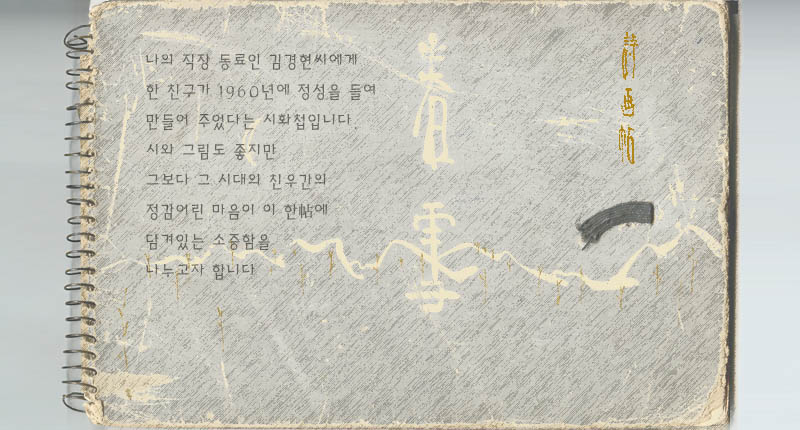 나의 직장 동료인 김경현씨에게
한 친구가 1960년에 정성을 들여
만들어 주었다는 시화첩입니다.
시와 그림도 좋지만
그보다 그 시대의 친우간의
정감어린 마음이 이 한帖에
담겨있는 소중함을
나누고자 합니다
春雪
詩画帖